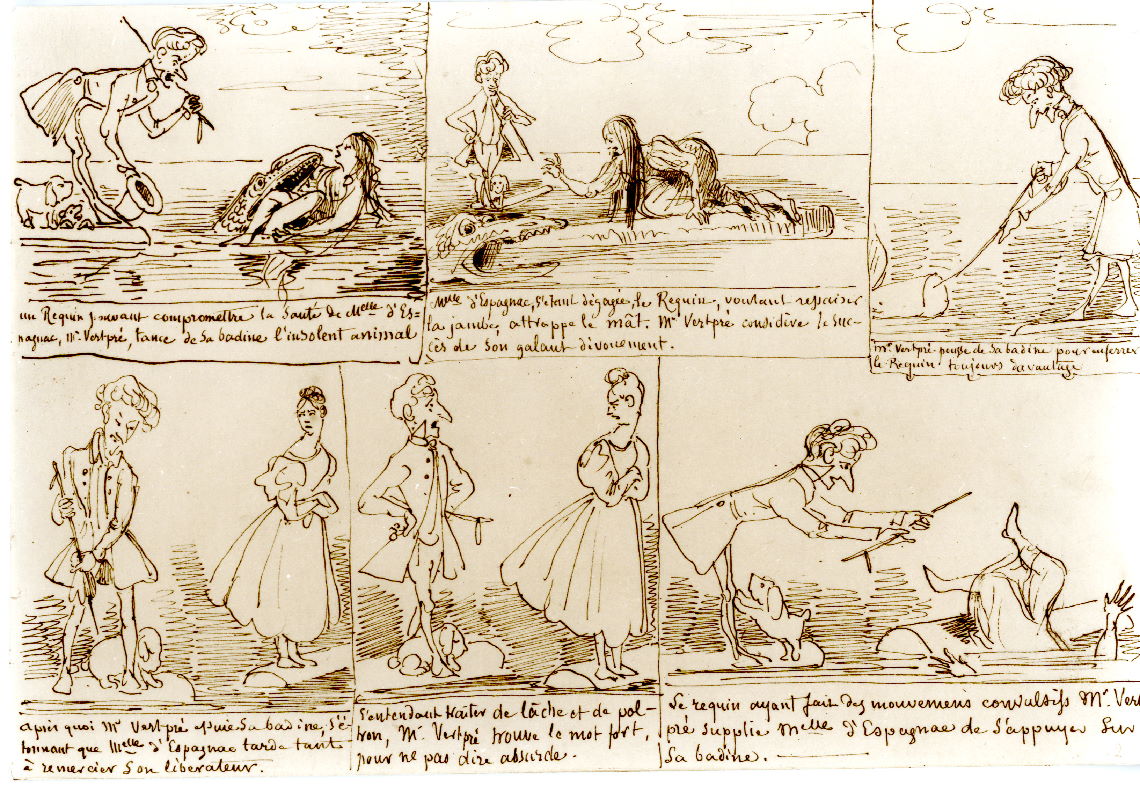 un Requin pouvant compromettre la Santé de Melle d'Es-
pagnac, Mr. Vertpré, tance de Sa badine l'insolent animal
Melle d'Espagnac, S'étant dégagée, le Requin, voulant ressaisir
la jambe, attrappe le mât. Mr Vertpré considère le Suc-
cès de Son galant dévouement.
Mr. Vertpré pousse de Sa badine pour enferrer
le Requin toujours davantage
après quoi Mr Vertpré essuie Sa badine, S'é-
tonnant que Melle d'Espagnac tarde tant
à remercier Son libérateur.
S'entendant traiter de lâche et de pol-
tron, Mr. Vertpré trouve le mot fort,
pour ne pas dire absurde.
Le requin ayant fait des mouvemens convulsifs Mr Vert
pré Supplie Melle d'Espagnac de S'appuyer Sur
Sa badine.